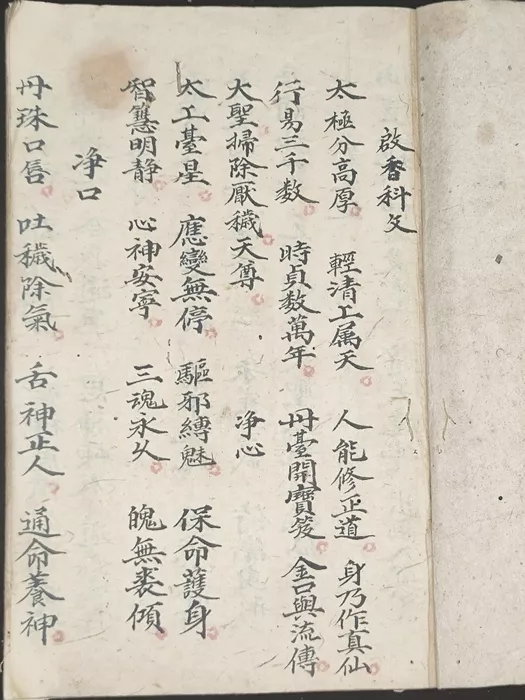 啟香科文
太極分高厚 輕清工属天 人能修正道 身乃作真仙
行易三千数 時貞数萬年 丹臺開寶笈 金口與流傳
大聖掃除厭穢天尊 净心
太工臺星 應變無停 驅邪縛魅 保命護身
智慧明静 心神安寧 三魂永久 魄無喪傾
净口
丹珠口唇 吐穢除氣 舌神正人 通命養神